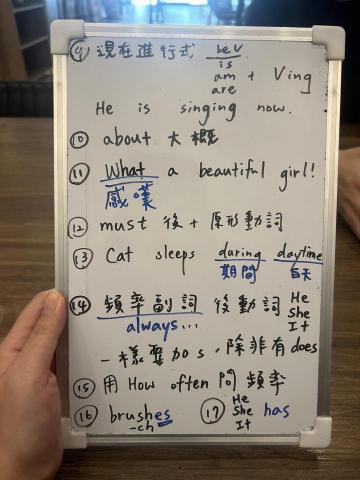 ⑨ 現在進行式 beV
is
am + Ving
are
He is singing now.
⑩ about 大概
⑪ What a beautiful girl!
感嘆
⑫ must 後 + 原形動詞
⑬ Cat sleeps during daytime
期間 白天
⑭ 頻率副詞 後動詞 He
always... She
It
一樣要加s,除非有does
⑮ 用 How often 問 頻率
⑯ brushes ⑰ He
-ch She has
It